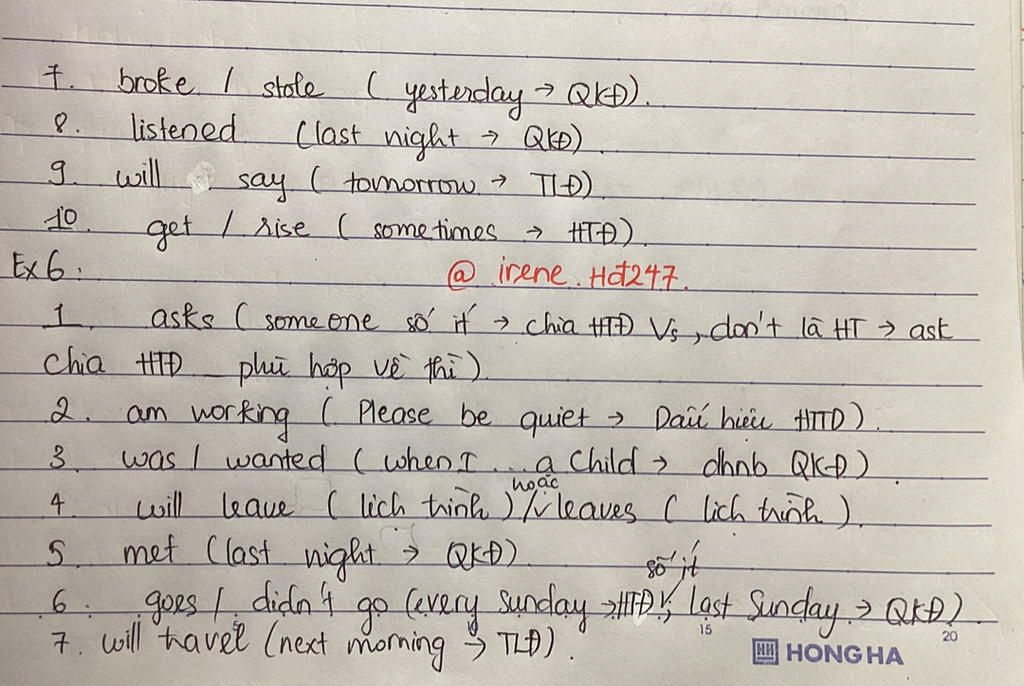 7. broke / stole ( yesterday → QKĐ).
8. listened (last night → QKĐ)
9. will say ( tomorrow → TLĐ)
10. get / rise ( sometimes → HTĐ)
Ex 6:
@ irene.Hđ247.
1. asks ( someone số ít → chia HTĐ Vs, don't là HT → ask
chia HTĐ phù hợp về thì)
2. am working ( Please be quiet → Dấu hiệu HTTD).
3. was / wanted ( when I ... a child → dhnb QKĐ)
hoặc
4. will leave ( lịch trình ) /v leaves ( lịch trình ).
5. met (last night → QKĐ)
số ít
6. goes / didn't go (every Sunday → HTĐ, last Sunday → QKĐ)
7. will travel (next morning → TLĐ).
15 20
HONG HA